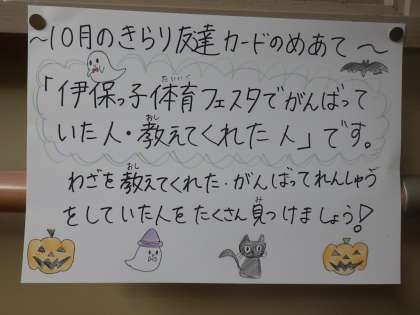 ～10月のきらり友達カードのめあて～
「伊保っ子体育フェスタでがんばって
いた人・教えてくれた人」です。
わざを教えてくれた・がんばってれんしゅう
をしていた人をたくさん見つけましょう！